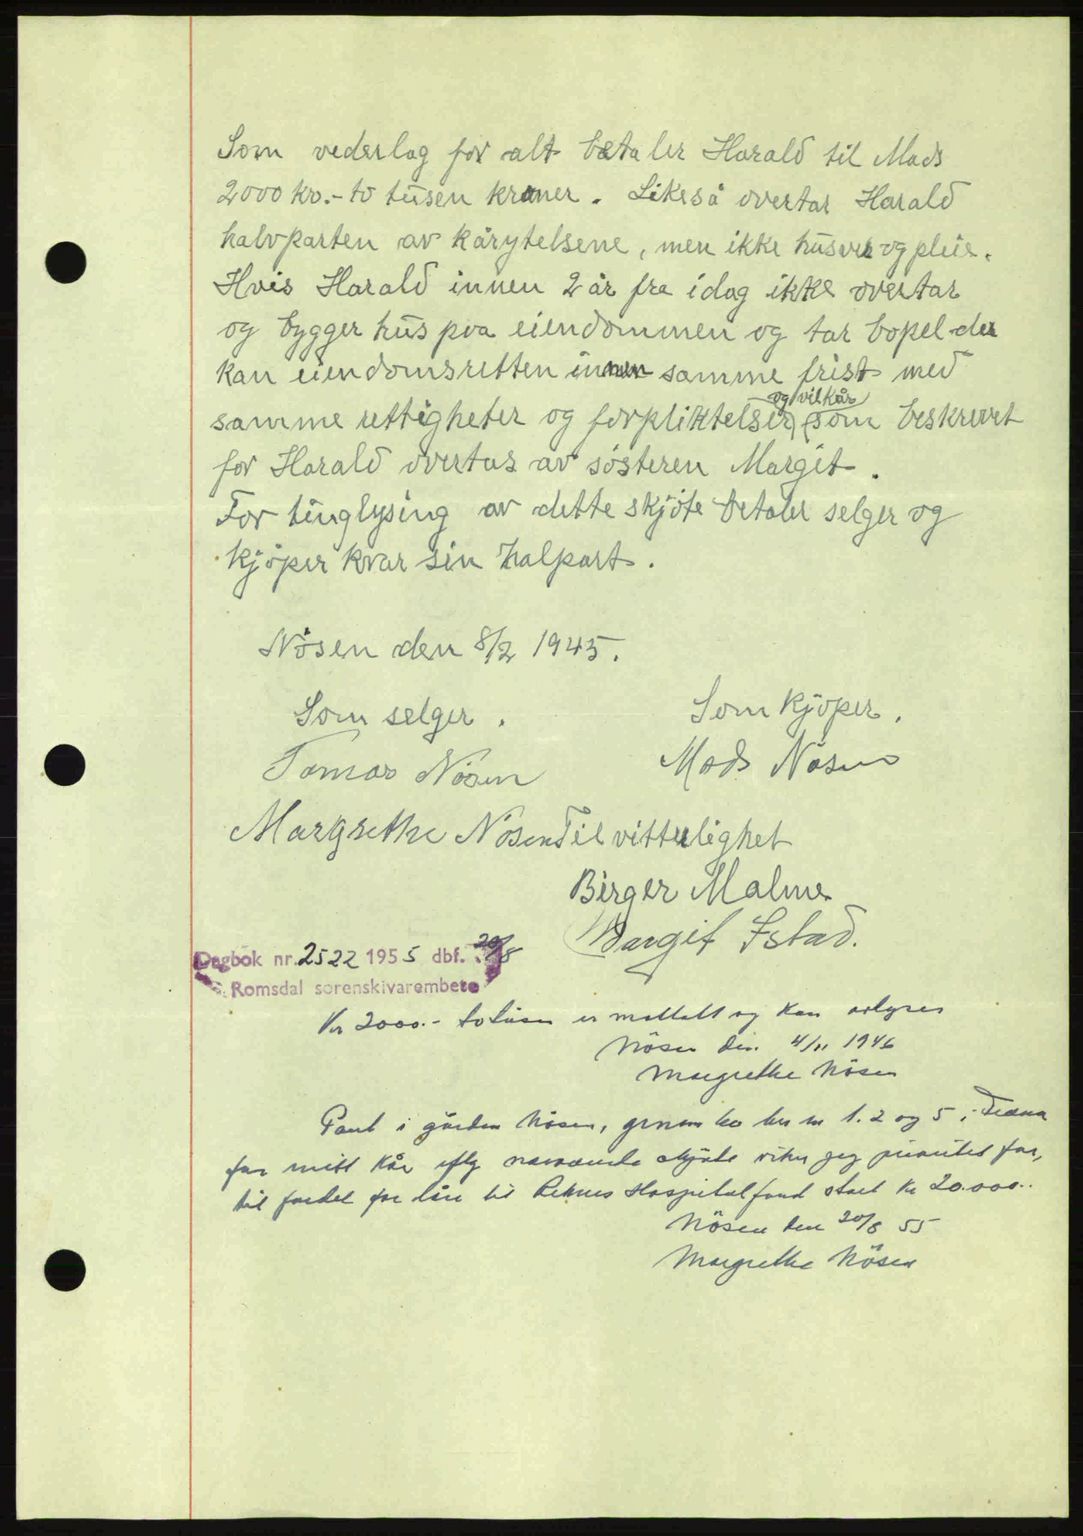 Som vederlag for alt betaler Harald til Mads
2000 kr.- to tusen kroner. Likeså overtar Harald
halvparten av kårytelsene, men ikke husver og pleie.
Hvis Harald innen 2 år fra idag ikke overtar
og bygger hus paa eiendommen og tar bopel der
kan eiendomsretten innen samme frist med
og vilkår
samme rettigheter og forpliktelser som beskrevet
for Harald overtas av søsteren Margit.
For tinglysing av dette skjöte betaler selger og
kjöper kvar sin halpart.
Nösen den 8/2 1945.
Som selger.
Som kjöper.
Tomas Nösen
Mads Nösen
Margrethe Nösen
Til vitterlighet
Birger Malme
Margit Istad.
Dagbok nr. 2522 1955 dbf. 20/8
Romsdal sorenskrivarembete
Kr 2000.- totusen er mottatt og kan avlyses
Nösen den 4/11 1946
Margrethe Nösen
Pant i gården Nösen, gnr. bnr 1. 2 og 5 i Fræna
for mitt kår iflg nærværende skjöte viker jeg prioritet for,
til fordel for lån til Reknes Hospitalfond stort kr 20.000.-
Nösen den 20/8 55
Margrethe Nösen